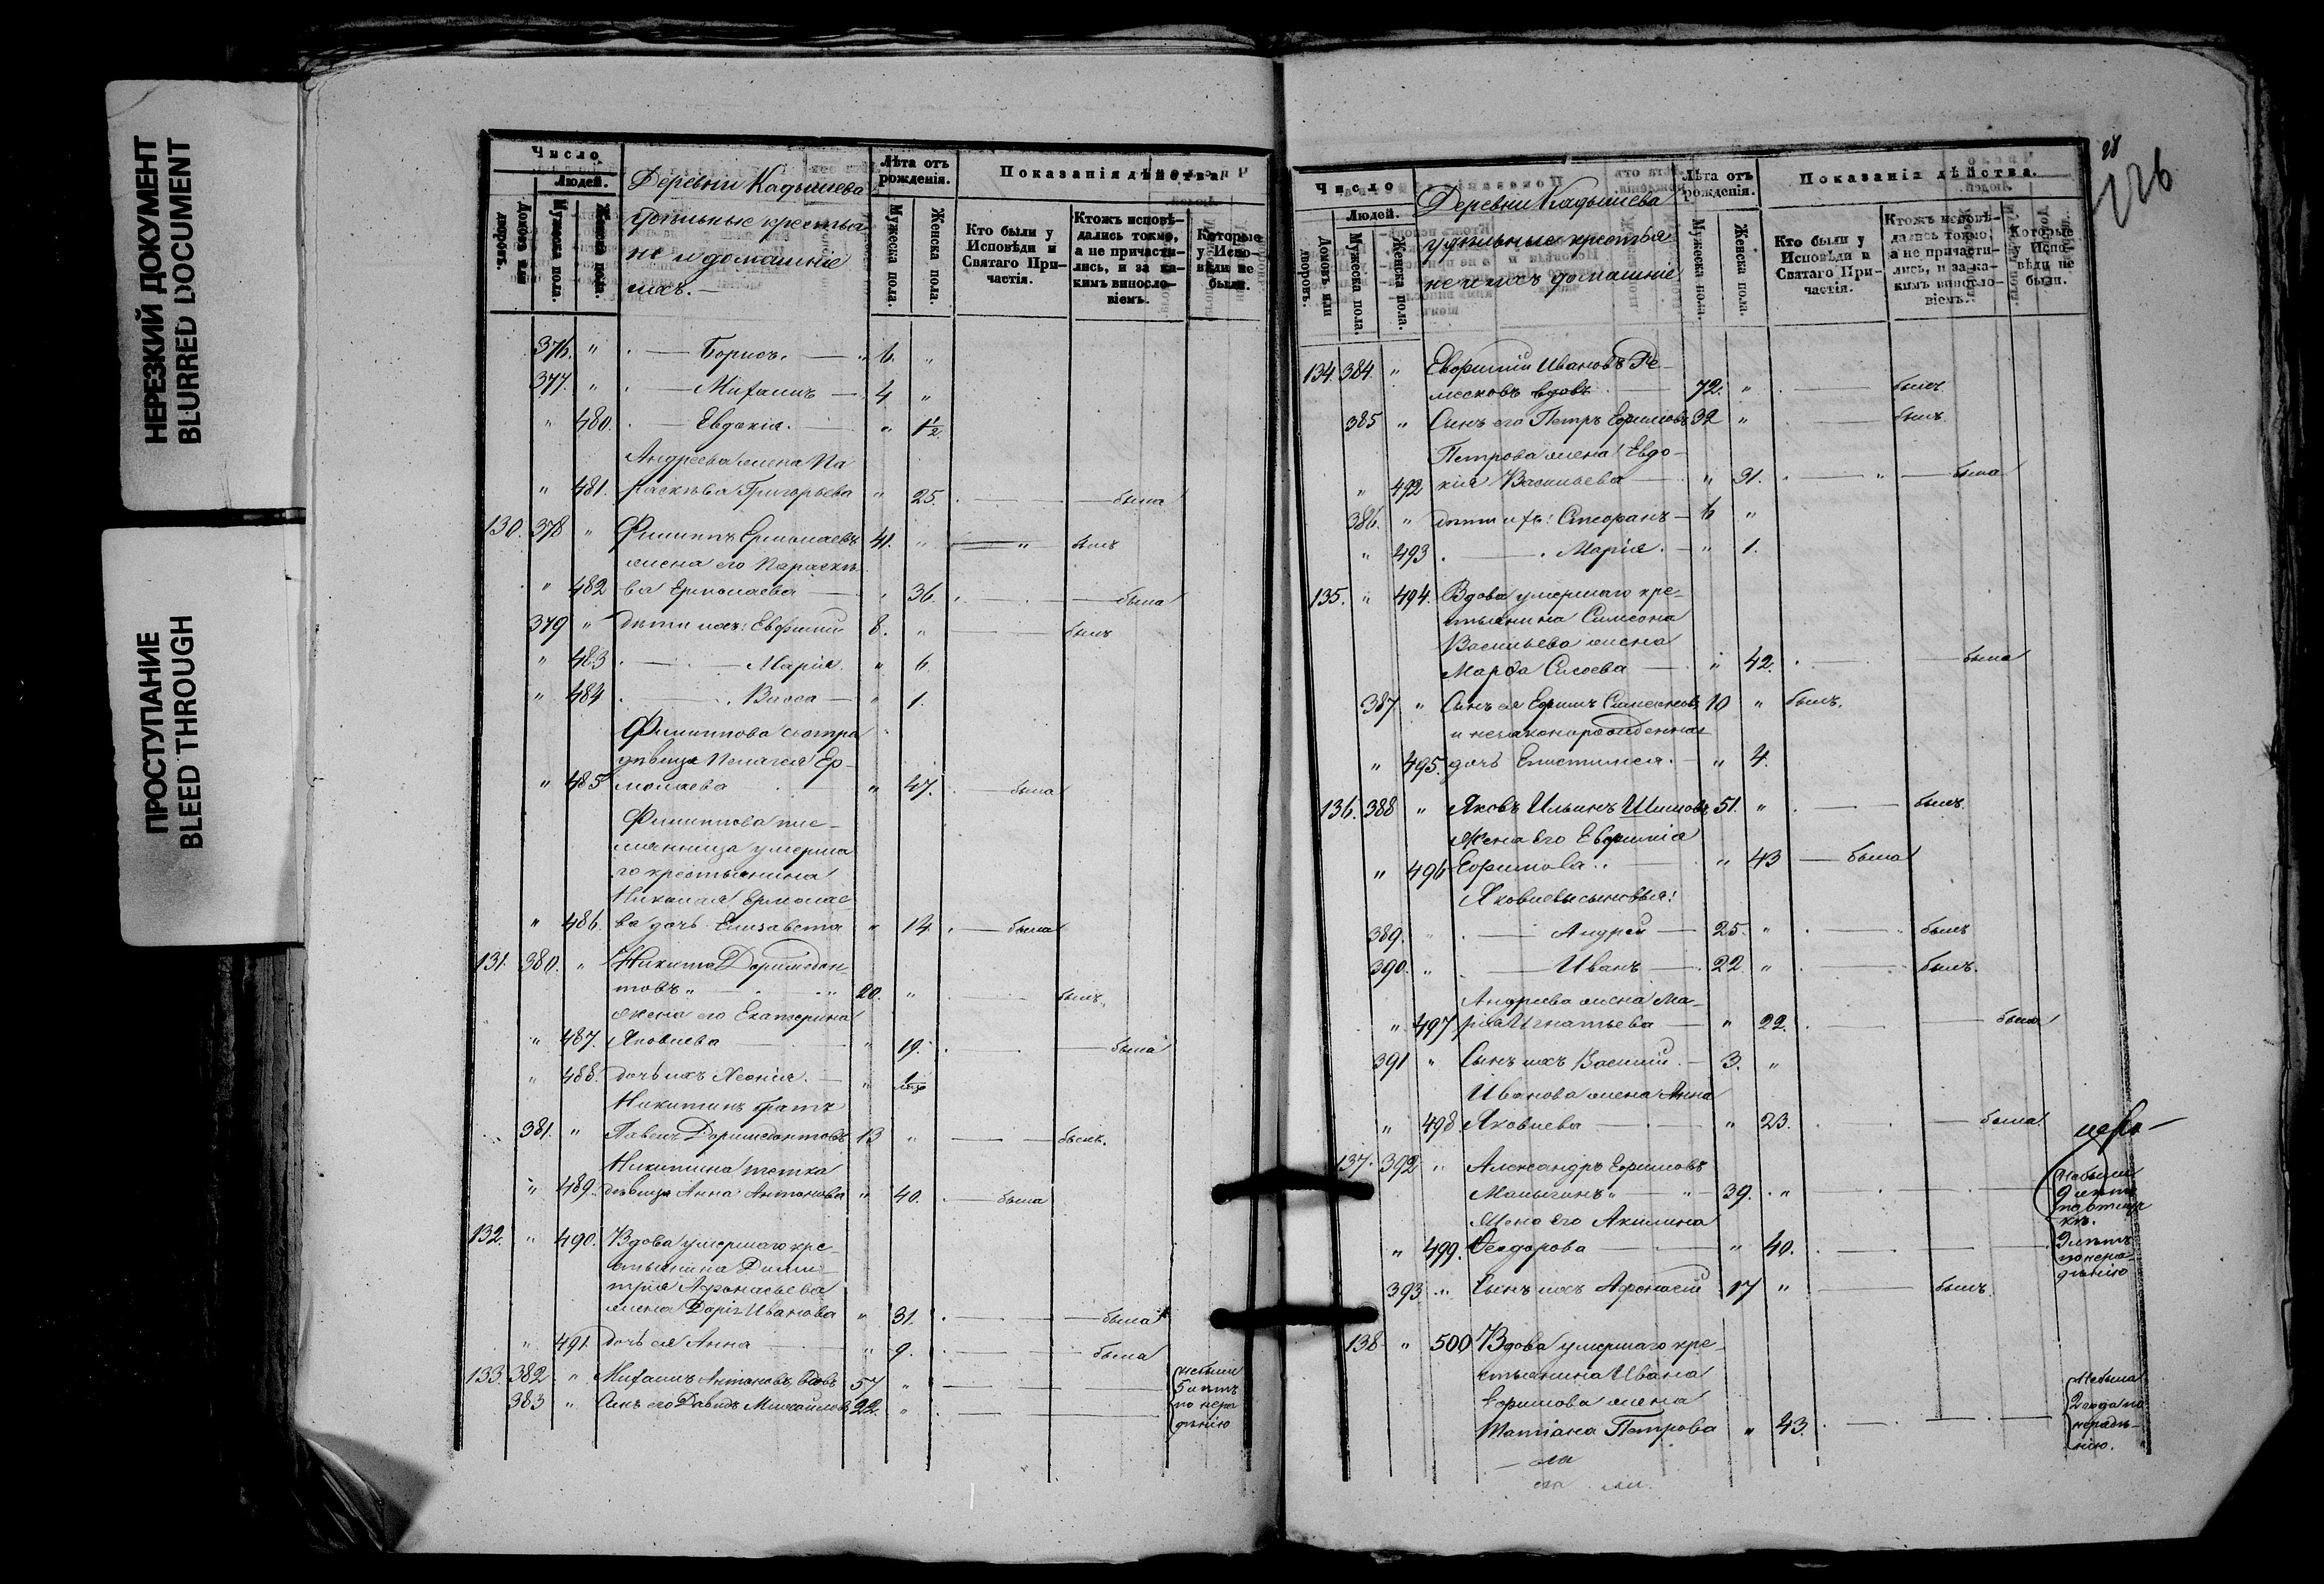 НЕРЕЗКИЙ ДОКУМЕНТ
BLURRED DOCUMENT
ПРОСТУПАНИЕ
BLEED THROUGH
Число
Людей.
Домовъ или дворовъ.
Мужеска пола.
Женска пола.
Деревни Кадышева
удѣльные крестья
не и домашніе
ихъ. —
Лѣта отъ рожденія.
Мужеска пола.
Женска пола.
Показанія дѣйства.
Кто были у Исповѣди и Святаго Причастія.
Ктожъ исповѣдались токмо, а не причастились, и за какимъ винословіемъ.
Которые у Исповѣди не были.
376. " — Борисъ. — 6. "
377. " — Михаилъ — 4 "
" 480. — Евдокія. — " 1 1/2
Андреева жена Па
" 481. раскѣва Григорьева " 25. — была
130. 378 " Филиппъ Ермолаевъ 41. " — " былъ
жена его Параскѣ
" 482 ва Ермолаева — " 36. — была
379 " дѣти ихъ: Евфимій 8. " — былъ
" 483 — Марія. " 6
" 484 — Васса — " 1.
Филиппова сестра
дѣвица Пелагея Ер-
" 485 молаева — " 47. — была
Филиппова пле-
мянница умерша
го крестьянина
Николая Ермолае-
" 486. ва дочь Елизавета " 14. — была
131. 380. " Никита Доримедон-
товъ " — 20. " былъ.
жена его Екатерина
" 487. Яковлева — " 19. — была
" 488. дочь ихъ Ксенія. — "
Никитинъ братъ
381. " Павелъ Доримедонтовъ 13 " — былъ.
Никитина тетка
" 489. дѣвица Анна Антонова " 40. — была
132. " 490. Вдова умершаго кре-
стьянина Дими-
трія Афонасьева
жена Дарія Иванова " 31. — была
" 491. дочь ея Анна — " 9. — была
133. 382 " Михаилъ Антоновъ, вдовъ 57 " —
383 " Сынъ его Давидъ Михайловъ 22. " —
не были
5 лѣтъ
по нера
дѣнію
226
Число
Людей.
Домовъ или дворовъ.
Мужеска пола.
Женска пола.
Деревни Кадышева
удѣльные крестья
не и ихъ домашніе
Лѣта отъ рожденія.
Мужеска пола.
Женска пола.
Показанія дѣйства.
Кто были у Исповѣди и Святаго Причастія.
Ктожъ исповѣдались токмо, а не причастились, и за какимъ винословіемъ.
Которые у Исповѣди не были.
134. 384. " Евфимій Ивановъ Ре-
месковъ вдовъ 72. " — былъ
385 " Сынъ его Петръ Ефимовъ 32 " — былъ
Петрова жена Евдо-
" 492 кія Васильева — " 31. — " — была
386. " дѣти ихъ: Стефанъ — 6 "
" 493 — Марія. — " 1.
135. " 494. Вдова умершаго кре-
стьянина Симеона
Васильева жена
Марфа Сысоева — " 42. — была
387 " Сынъ ея Ефимъ Симеоновъ 10 " былъ.
и незаконорожденная
" 495. дочь Епистимія. — " 4.
136. 388 " Яковъ Ильинъ Шиловъ 51. " — былъ.
Жена его Евфимія
" 496 Ефимова. " 43 — была
Яковлевы сыновья:
389. " — Андрей — 25. " — былъ
390. " — Иванъ — 22 " — былъ.
Андреева жена Ма-
" 497 рія Игнатьева — " 22. — была
391 " Сынъ ихъ Василій. — 3. "
Иванова жена Анна
" 498 Яковлева — " 23. — была.
137. 392 " Александръ Ефимовъ
Малыгинъ " — " — 39. " —
не были
9 лѣтъ
по отлуч
кѣ.
Жена его Акилина
" 499. Ѳеодорова — " 40. —
9 лѣтъ
по нера-
дѣнію
393 " Сынъ ихъ Афонасій 17 " — былъ.
138 " 500 Вдова умершаго кре-
стьянина Ивана
Ефимова жена
Татіана Петрова " 43. —
не была
2 года по
нерадѣ-
нію.